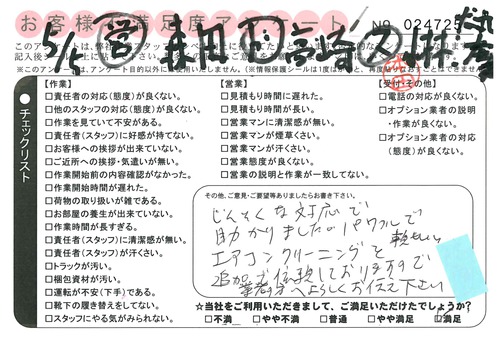 お客様満足度アンケート! No. 02472
5/5 営 森田 高崎 小林
記入後スタッフに
※このアンケートは、アンケート目的以外には使用いたしません。
チェックリスト
【作業】
□責任者の対応(態度)が良くない。
□他のスタッフの対応(態度)が良くない。
□作業を見ていて不安がある。
□責任者(スタッフ)に好感が持てない。
□お客様への挨拶が出来ていない。
□ご近所への挨拶・気遣いが無い。
□作業開始前の内容確認がなかった。
□作業開始時間が遅れた。
□荷物の取り扱いが雑である。
□お部屋の養生が出来ていない。
□作業時間が長すぎる。
□責任者(スタッフ)に清潔感が無い。
□責任者(スタッフ)が汗くさい。
□トラックが汚い。
□梱包資材が汚い。
□運転が不安(下手)である。
□靴下の履き替えをしてない。
□スタッフにやる気がみられない。
【営業】
□見積もり時間に遅れた。
□見積もり時間が長い。
□営業マンに清潔感が無い。
□営業マンが煙草くさい。
□営業マンが汗くさい。
□営業態度が良くない。
□営業の説明と作業が一致してない。
【受付・その他】
□電話の対応が良くない。
□オプション業者の説明
・作業が良くない。
□オプション業者の対応
(態度)が良くない。
その他、ご意見・ご要望等ありましたらお書き下さい。
じんそくな対応で
助かりました。パワフルで
エアコンクリーニングを
追加で依頼しておりますので
業者さんへよろしくお伝え下さい
☆当社をご利用いただきまして、ご満足いただけたでしょうか?
□不満 □やや不満 □普通 □やや満足 □満足